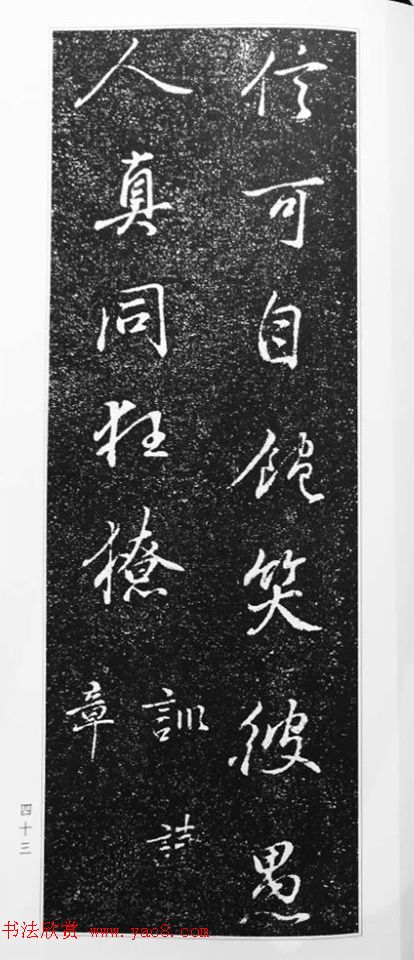 信可自飽笑彼愚
人真同狂獠
訓
章
四十三
书法欣赏 www.yac8.com